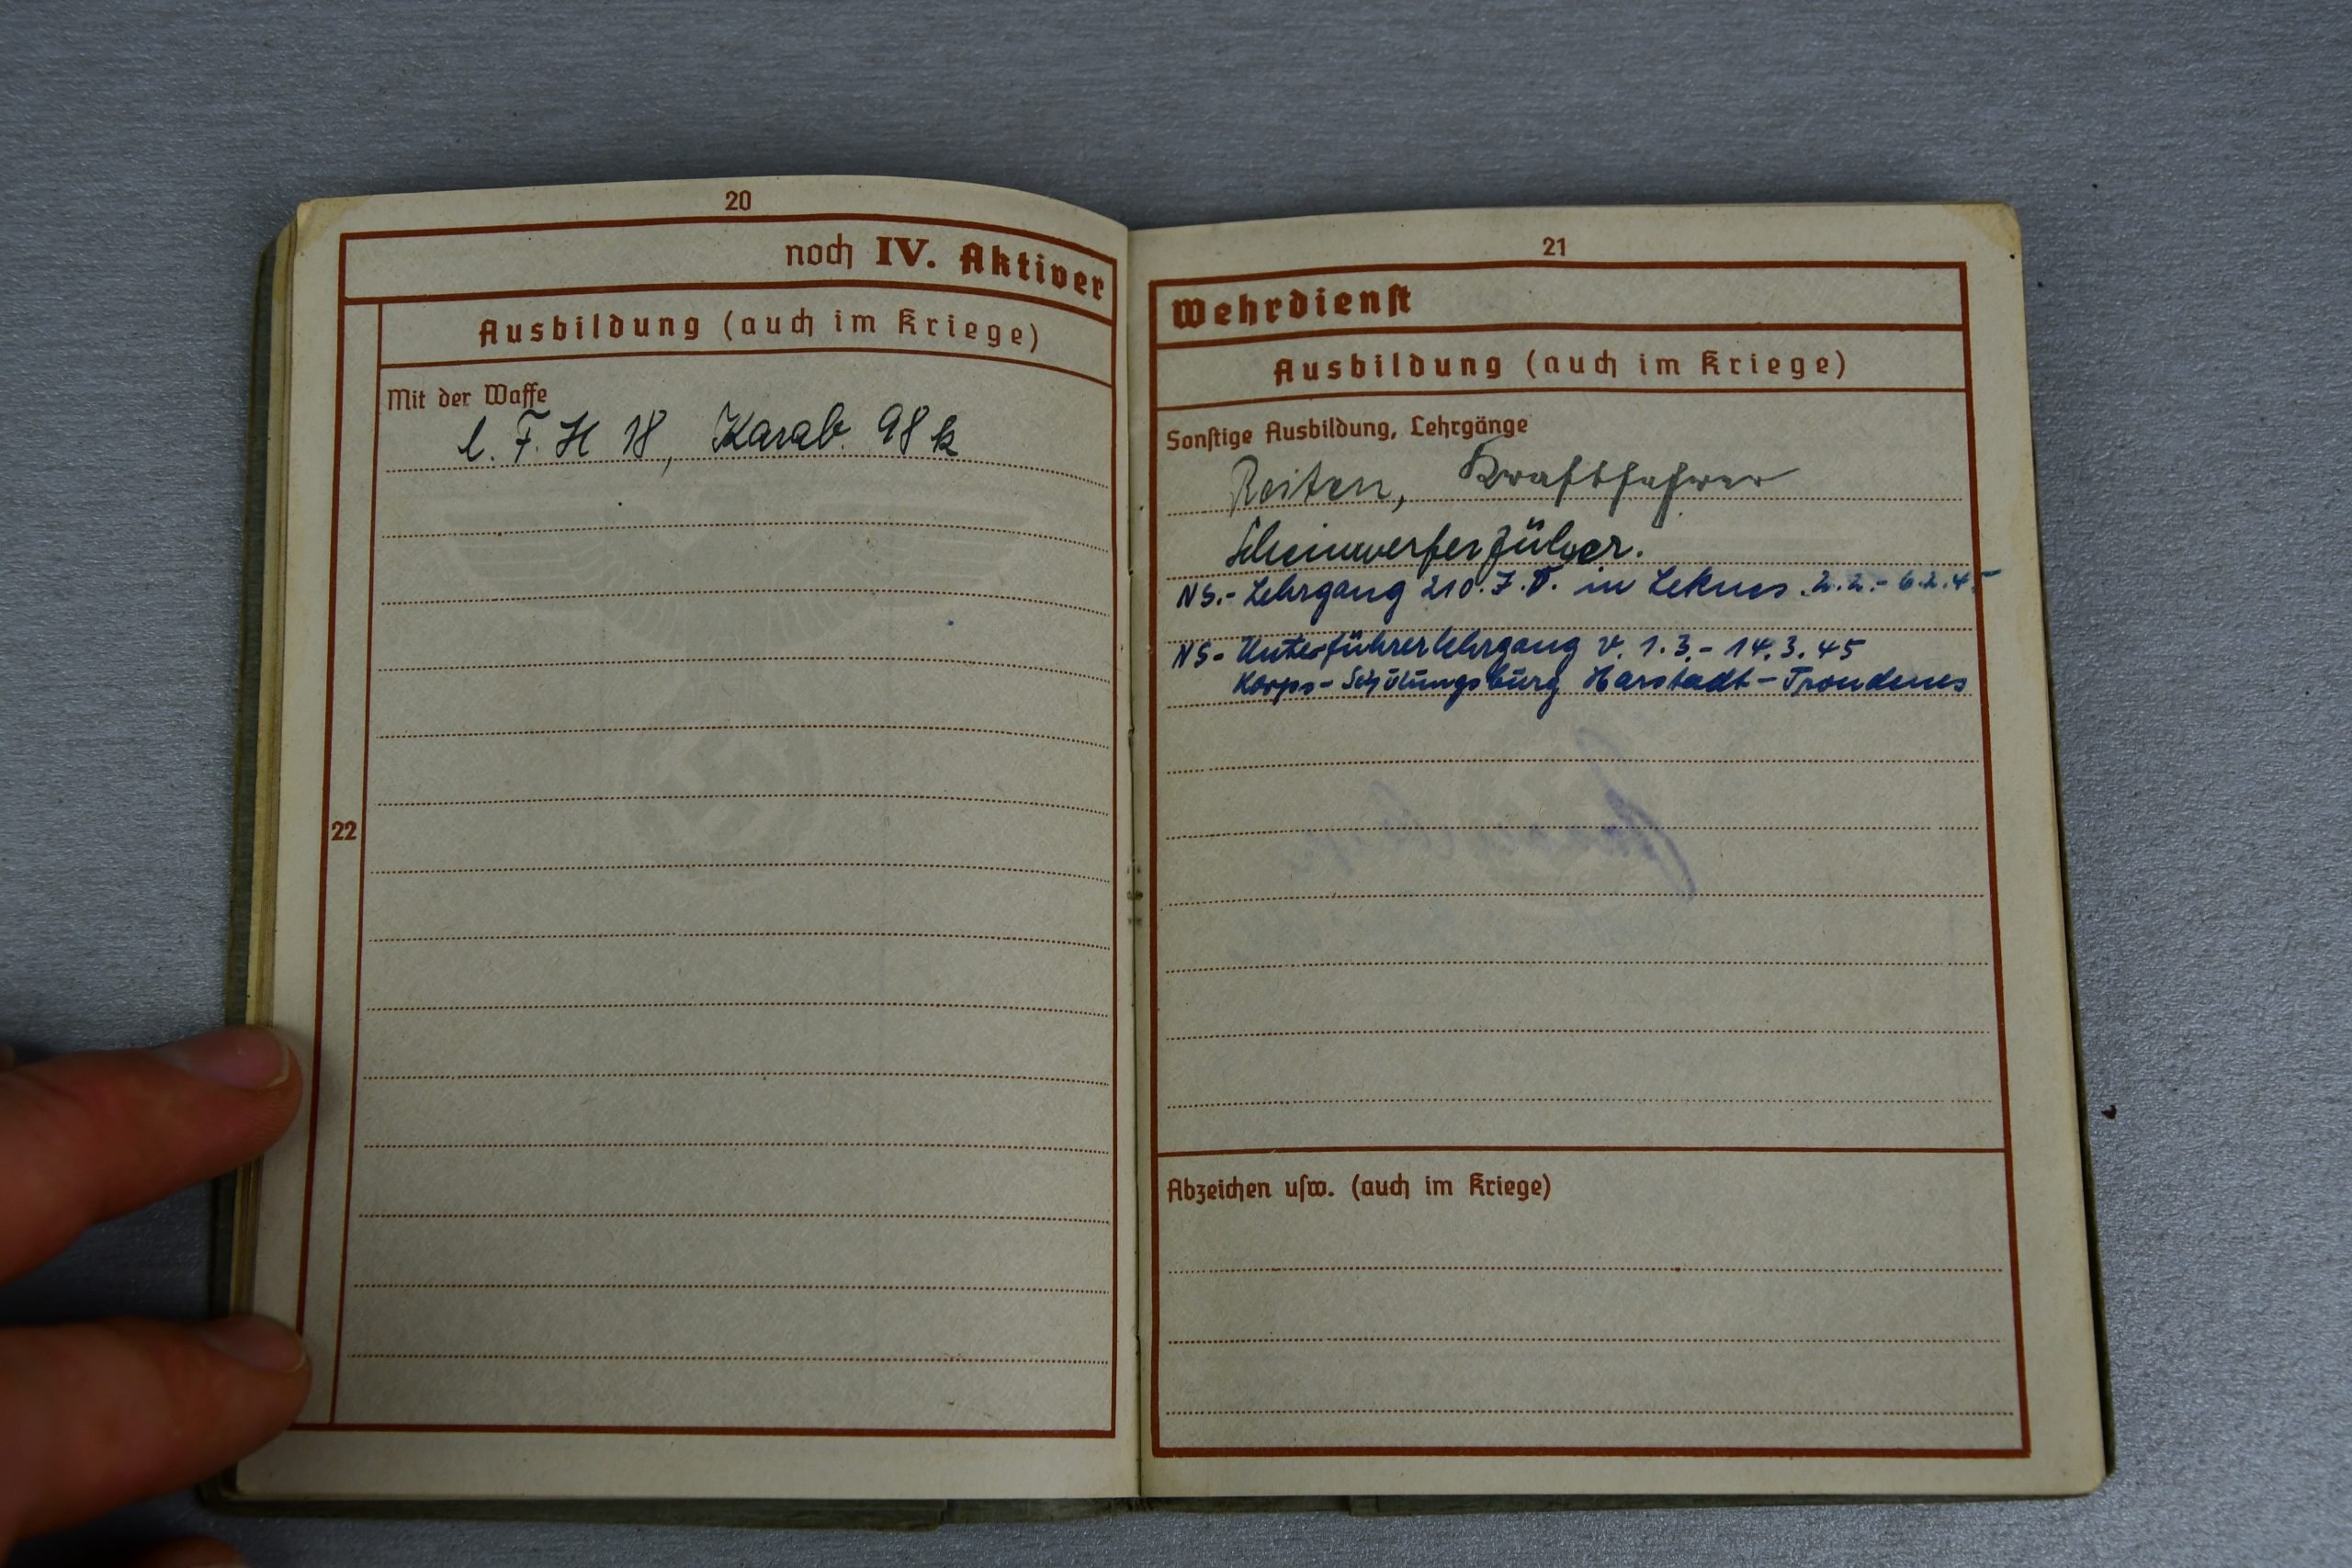 20
noch IV. Aktiver
Ausbildung (auch im Kriege)
Mit der Waffe
l. F. H 18, Karab. 98 k
22
21
Wehrdienst
Ausbildung (auch im Kriege)
Sonstige Ausbildung, Lehrgänge
Reiten, Kraftfahrer
Scheinwerferführer.
NS.- Lehrgang 210. I. D. in Leknes. 2.2.- 6.2.45
NS- Unterführerlehrgang v. 1.3.- 14.3.45
Korps- Schulungsburg Harstadt - Trondenes
Abzeichen usw. (auch im Kriege)